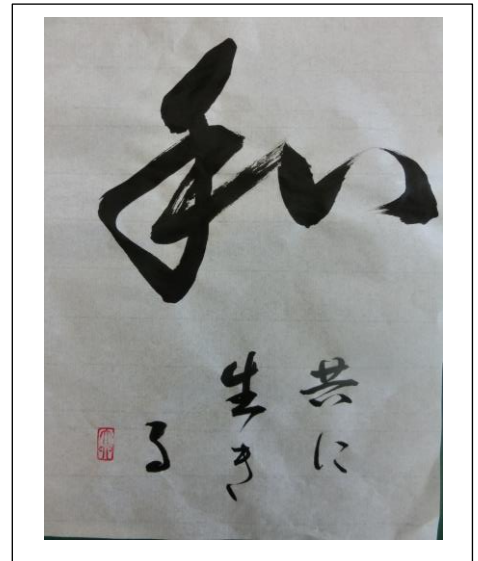 和
共に
生き
る